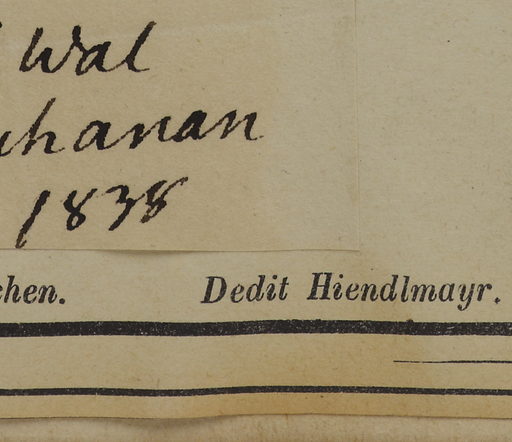 Wal
chanan
1838
chen. Dedit Hiendlmayr.